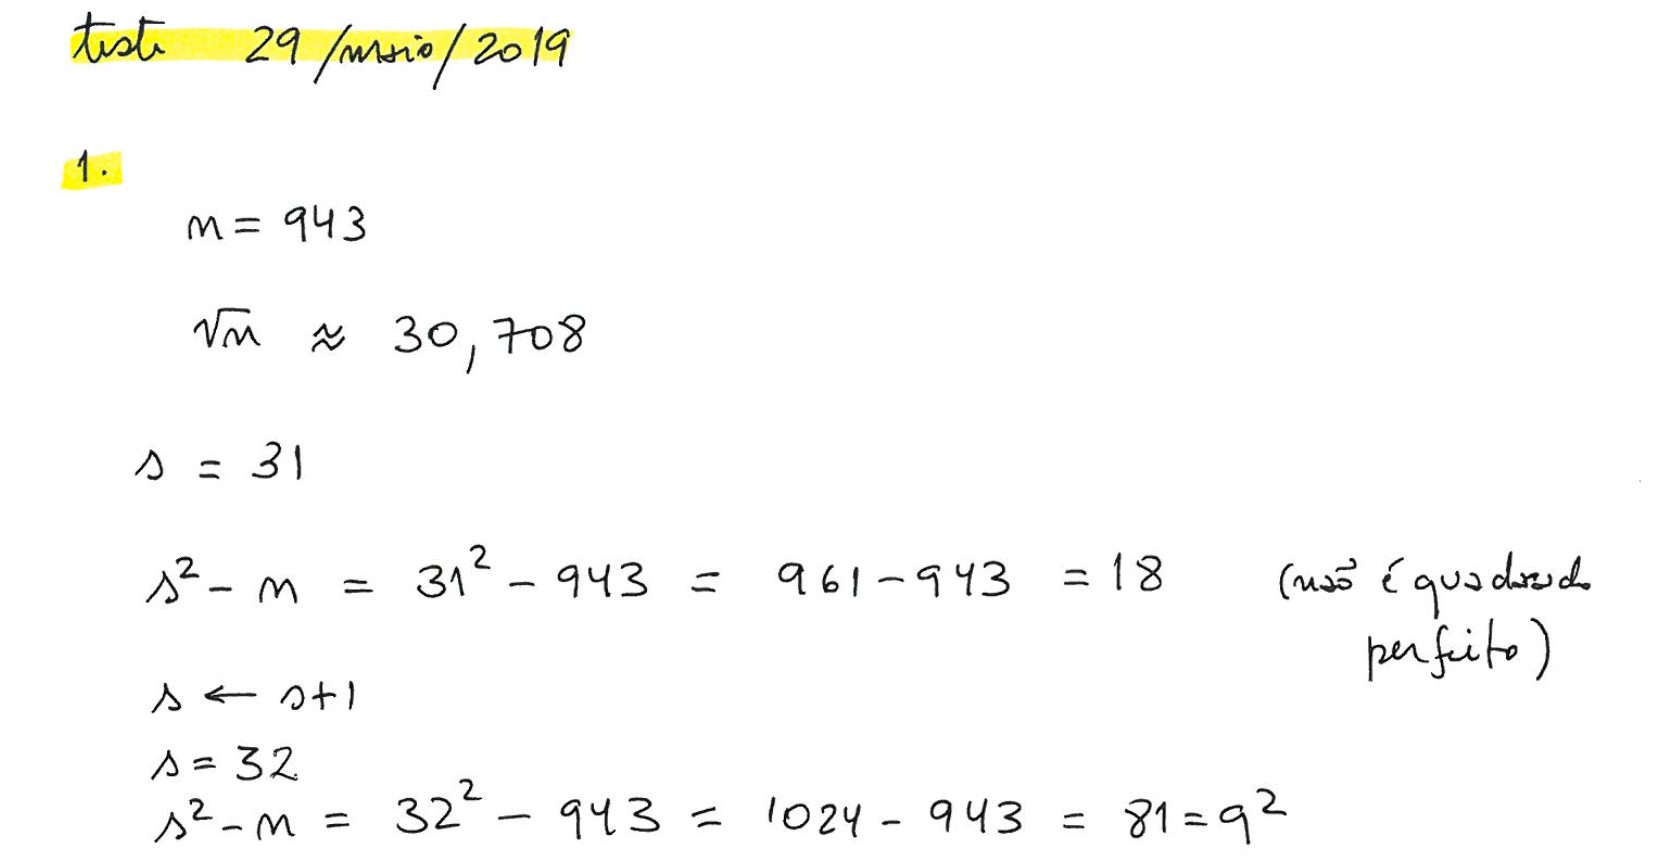 teste 29/maio/2019
1.
n = 943
√n ≈ 30,708
s = 31
s² - n = 31² - 943 = 961 - 943 = 18 (não é quadrado
perfeito)
s ← s+1
s = 32
s² - n = 32² - 943 = 1024 - 943 = 81 = 9²